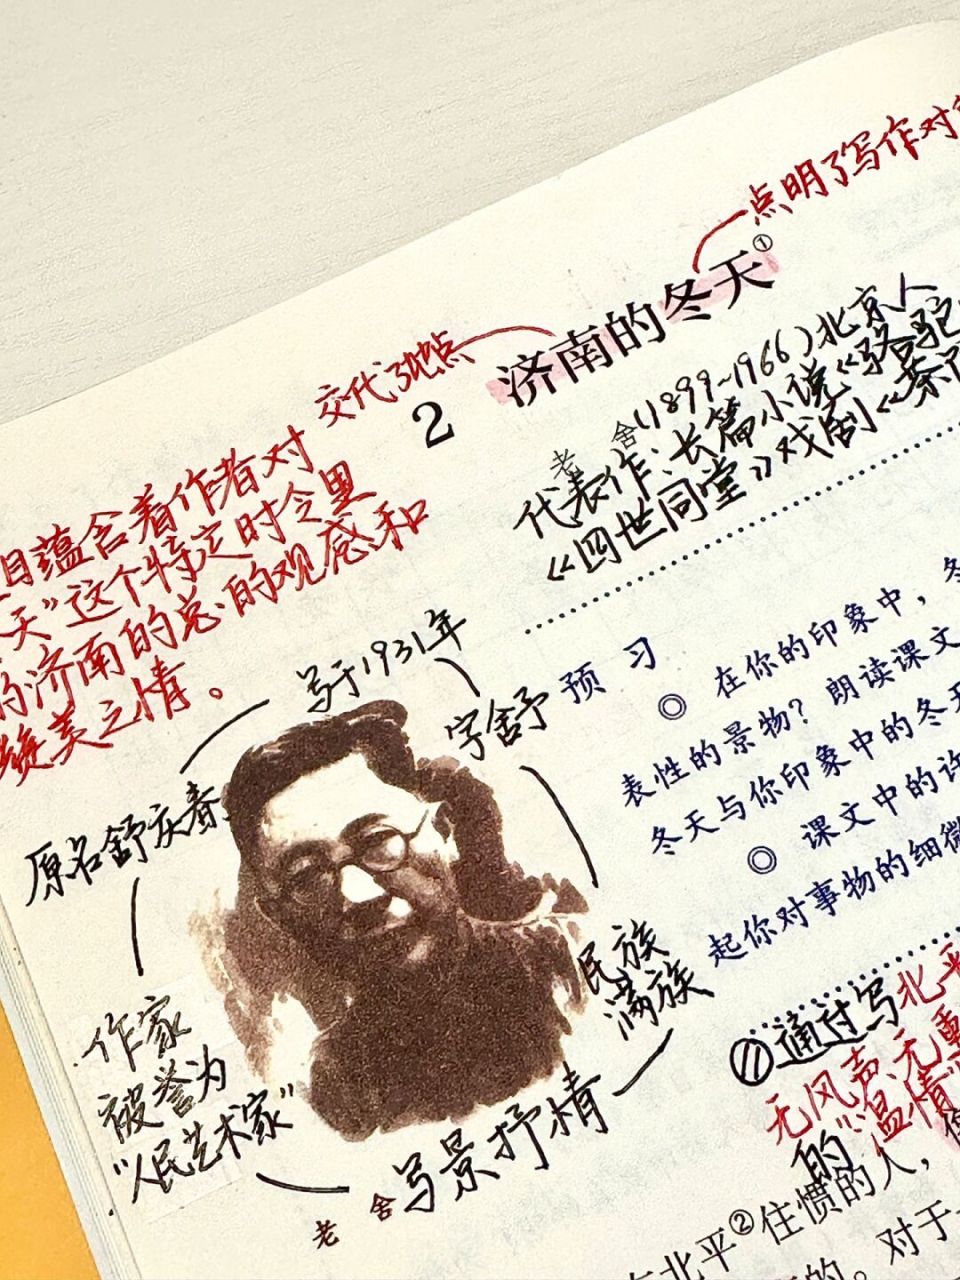 点明了写作对
2 济南的冬天①
交代了地点
老舍(1899~1966)北京人
代表作:长篇小说《骆驼
《四世同堂》戏剧《茶
目蕴含着作者对
天”这个特定时令里
的济南的总的观感和
赞美之情。
写于1931年
字舍予
原名舒庆春
民族
满族
作家
被誉为
“人民艺术家”
写景抒情
老舍
预 习
◎ 在你的印象中,冬
表性的景物?朗读课文
冬天与你印象中的冬天
◎ 课文中的许
起你对事物的细微
⑪通过写北平
无风声、无重
的“温情”
北平②住惯的人,
的。对于